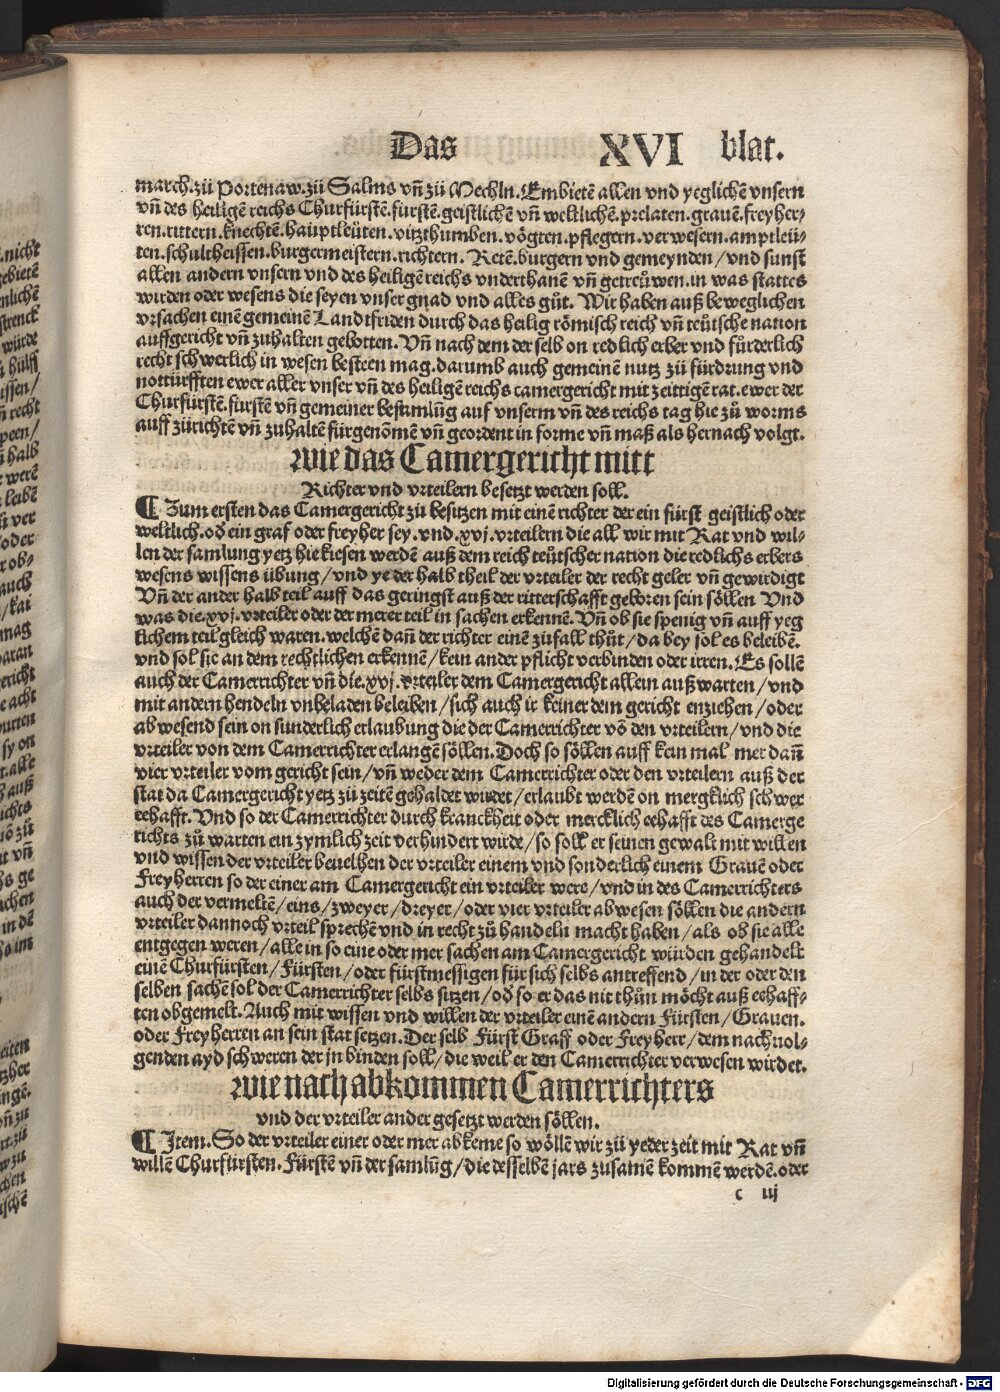 Das XVI blat.
march.zů Portenaw.zů Salms vñ zů Mechln. Embietẽ allen vnd yeglichẽ vnsern
vñ des heiligẽ reichs Churfürstẽ.fürstẽ.geistlichẽ vñ weltlichẽ.prelaten.grauẽ.freyher-
ren.rittern.knechtẽ.hauptleüten.vitzthumben.vögten.pflegern.verwesern.amptleü-
ten.schultheissen.burgermeistern.richtern. Retẽ.burgern vnd gemeynden/vnd sunst
allen andern vnsern vnd des heiligẽ reichs vnderthanẽ vñ getreüwen.in was stattes
wirden oder wesens die seyen vnser gnad vnd alles gůt. Wir haben auß beweglichen
vrsachen einẽ gemeinẽ Landtfriden durch das heilig römisch reich vñ teütsche nation
auffgericht vñ zuhalten gebotten. Vñ nach dem der selb on redlich erber vnd fürderlich
recht schwerlich in wesen besteen mag.darumb auch gemeinẽ nutz zů fürdrung vnd
notturfften ewer aller vnser vñ des heiligẽ reichs camergericht mit zeittigẽ rat.ewer der
Churfürstẽ.fürstẽ vñ gemeiner besamlũg auf vnserm vñ des reichs tag hie zů worms
auff zůrichtẽ vñ zuhaltẽ fürgenõmẽ vñ geordent in forme vñ maß als hernach volgt.
wie das Camergericht mitt
Richter vnd vrteilern besetzt werden soll.
¶ Zum ersten das Camergericht zů besitzen mit einẽ richter der ein fürst geistlich oder
weltlich.oď ein graf oder freyher sey.vnd.xvj.vrteilern die all wir mit Rat vnd wil-
len der samlung yetz hie kiesen werdẽ auß dem reich teütscher nation die redlichs erbers
wesens wissens übung/vnd ye der halb theil der vrteiler der recht geler vñ gewirdigt
Vñ der ander halb teil auff das geringst auß der ritterschafft geboren sein söllen Vnd
was die.xvj.vrteiler oder der merer teil in sachen erkennẽ. Vñ ob sie spenig vñ auff yeg
klichem teil gleich waren.welchẽ dañ der richter einẽ zufall thůt/da bey sol es beleibẽ.
vnd sol sie an dem rechtlichen erkennẽ/kein ander pflicht verbinden oder irren. Es sollẽ
auch der Camerrichter vñ die.xvj.vrteiler dem Camergericht allein auß warten/vnd
mit andern hendeln vnbeladen beleiben/sich auch ir keiner dem gericht enziehen/oder
abwesend sein on sunderlich erlaubung die der Camerrichter võ den vrteilern/vnd die
vrteiler von dem Camerrichter erlangẽ söllen. Doch so söllen auff kein mal mer dañ
vier vrteiler vom gericht sein/vñ weder dem Camerrichter oder den vrteilern auß der
stat da Camergericht yetz zů zeitẽ gehaldet wirdet/erlaubt werdẽ on mergklich schwer
eehafft. Vnd so der Camerrichter durch kranckheit oder mercklich eehafft des Camerge
richts zů warten ein zymlich zeit verhindert wirde/so soll er seinen gewalt mit willen
vnd wissen der vrteiler beuelhen der vrteiler einem vnd sonderlich einem Grauẽ oder
Freyherren so der einer am Camergericht ein vrteiler were/vnd in des Camerrichters
auch der vermeltẽ/eins/zweyer/dreyer/oder vier vrteiler abwesen söllen die andern
vrteiler dannoch vrteil sprechẽ vnd in recht zů handeln macht haben/als ob sie alle
entgegen weren/alle in so eine oder mer sachen am Camergericht würden gehandelt
einẽ Churfürsten/Fürsten/oder fürstmessigen für sich selbs antreffend/in der oder den
selben sachẽ sol der Camerrichter selbs sitzen/oď so er das nit thůn möcht auß eehaff-
ten obgemelt. Auch mit wissen vnd willen der vrteiler einẽ andern Fürsten/Grauen.
oder Freyherren an sein stat setzen. Der selb Fürst Graff oder Freyherr/dem nachuol-
genden ayd schweren der jn binden soll/die weil er den Camerrichter verwesen wirdet.
wie nach abkommen Camerrichters
vnd der vrteiler ander gesetzt werden söllen.
¶ Item. So der vrteiler einer oder mer abkeme so wöllẽ wir zů yeder zeit mit Rat vñ
willẽ Churfürsten. Fürstẽ vñ der samlũg/die desselbẽ jars zusamẽ kommẽ werdẽ.oder
c iij
Digitalisierung gefördert durch die Deutsche Forschungsgemeinschaft - DFG